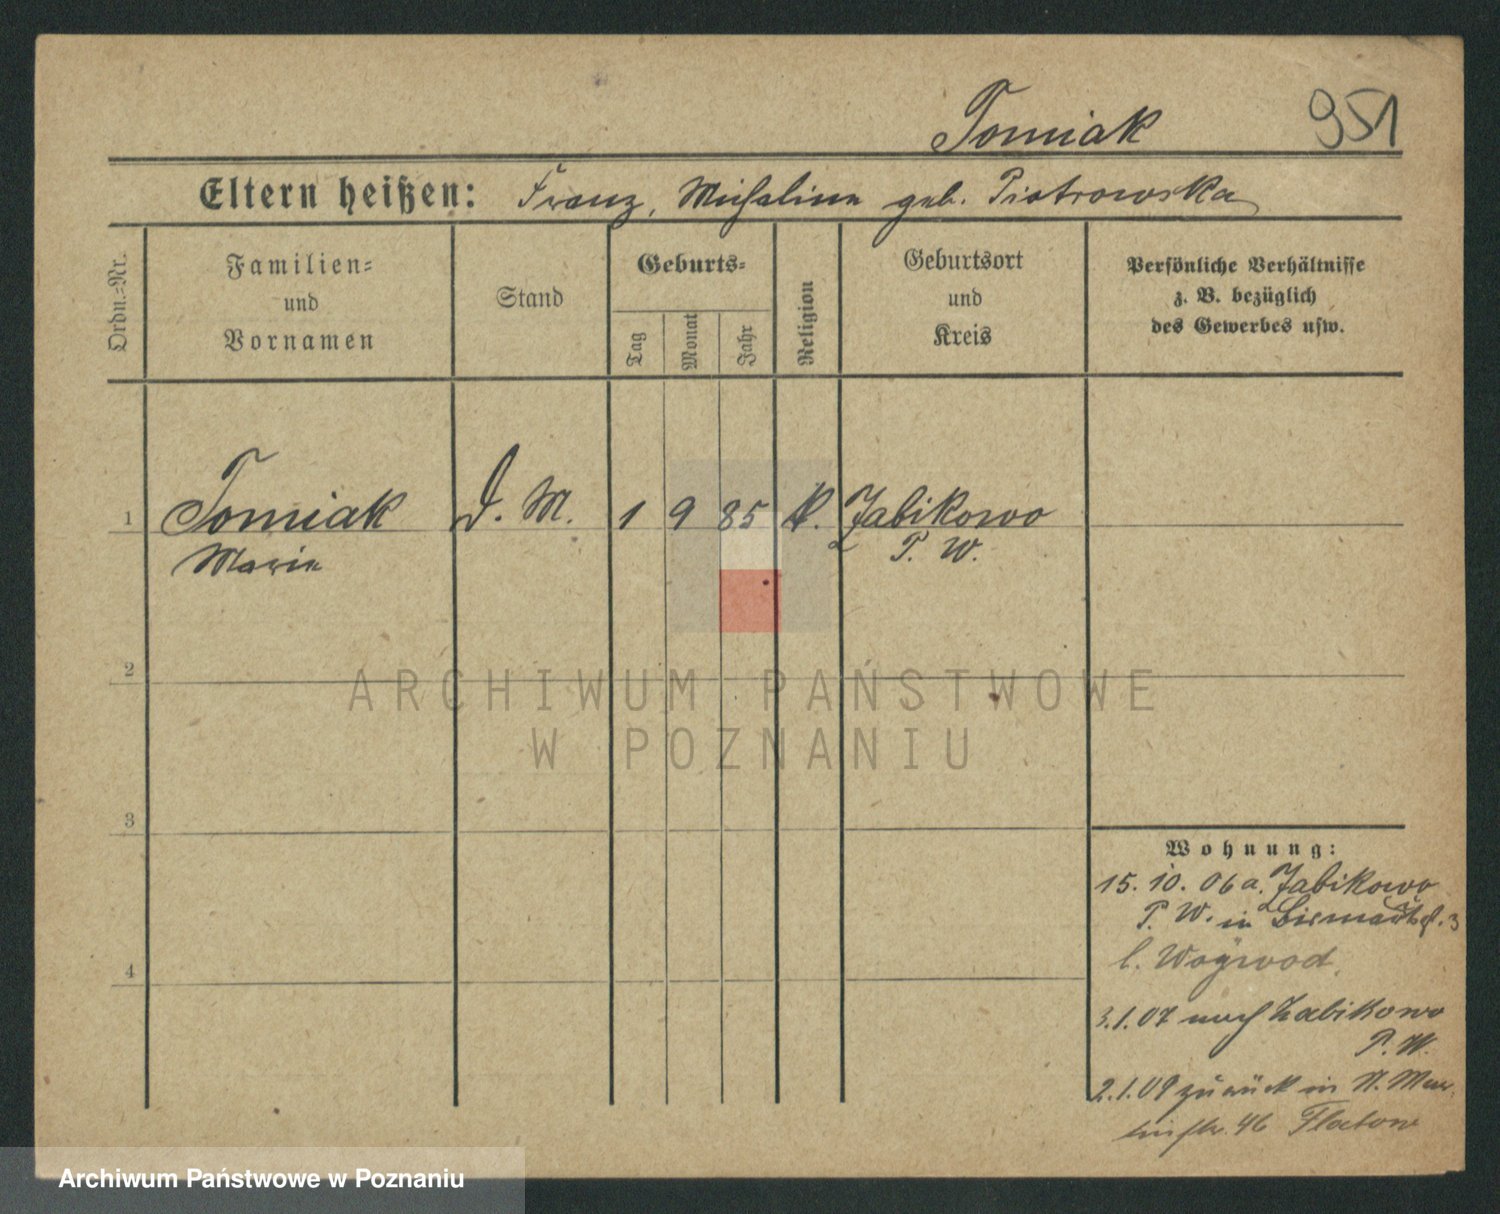 Tomiak 951
Eltern heißen: Franz, Michalina geb. Piotrowska
Ordn.-Nr.
Familien-
und
Vornamen
Stand
Geburts-
Tag
Monat
Jahr
Religion
Geburtsort
und
Kreis
Persönliche Verhältnisse
z. B. bezüglich
des Gewerbes usw.
1 Tomiak D. M. 1 9 85 k. Zabikowo
Marie P. W.
2
ARCHIWUM PAŃSTWOWE
W POZNANIU
3
Wohnung:
15. 10. 06 a. Zabikowo
P. W. in Bismarckst. 3
4
b. Woywod
3.1.07 nach Zabikowo
P. W.
2.1.09 zurück in
46 Flatow
Archiwum Państwowe w Poznaniu